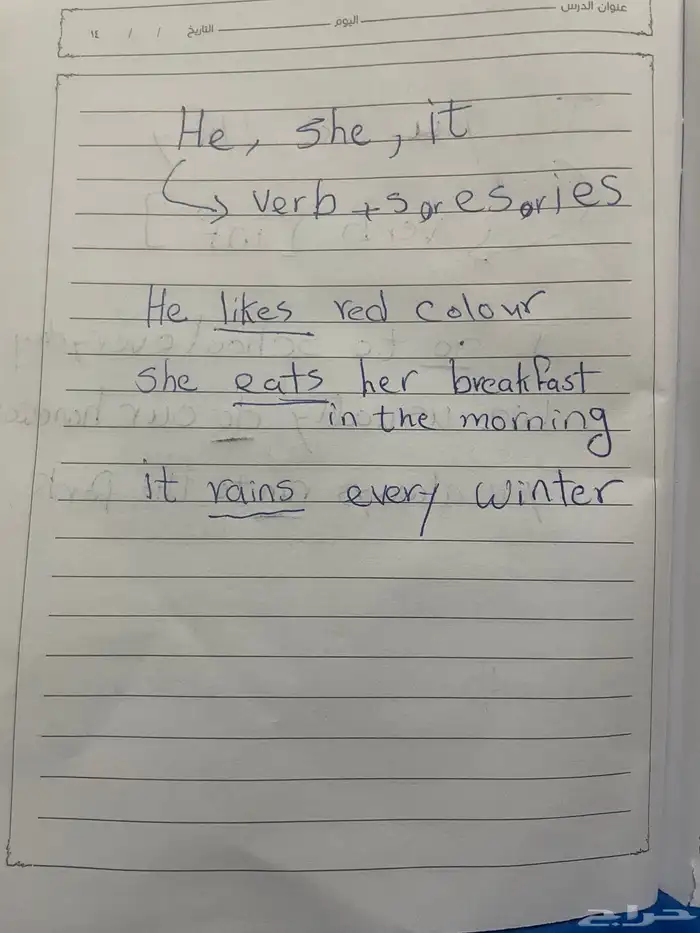 عنوان الدرس
اليوم
التاريخ / / ١٤
He, she, it
verb + s or es or ies
He likes red colour
she eats her breakfast
in the morning
it rains every winter
حراج